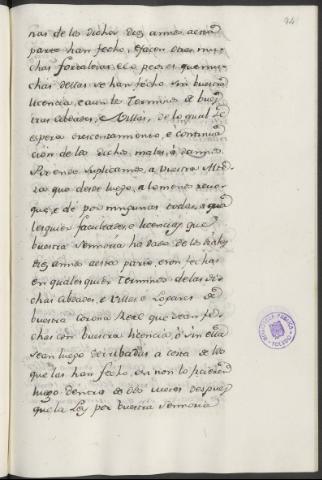 94
nas de los dichos diez annos a esta
parte han fecho, e facen otras mu-
chas fortalezas, e lo peor es que mu-
chas dellas se han fecho sin buestra
licencia, e aun en terminos de bues-
tras Cibdades, e Villas, de lo qual se
espera crescentamiento, e continua-
cion de los dichos males, e dannos.
Por ende suplicamos, a Vuestra Alte-
za que desde luego, a lo menos revo-
que, e dé por ningunas todas, e qua-
lesquier facultades, e licencias que
buestra Sennoria ha dado de los dichos
diez annos a esta parte, e son fechas
en qualesquier terminos de las di-
chas Cibdades, e Villas e Logares de
buestra Corona Real que sean fe-
chas con buestra licencia, o sin ella
sean luego derribadas a costa de los
que las han fecho, e si non lo ficieren
luego dentro de dos meses despues
que la Ley por buestra Sennoria
BIBLIOTECA PUBLICA
TOLEDO